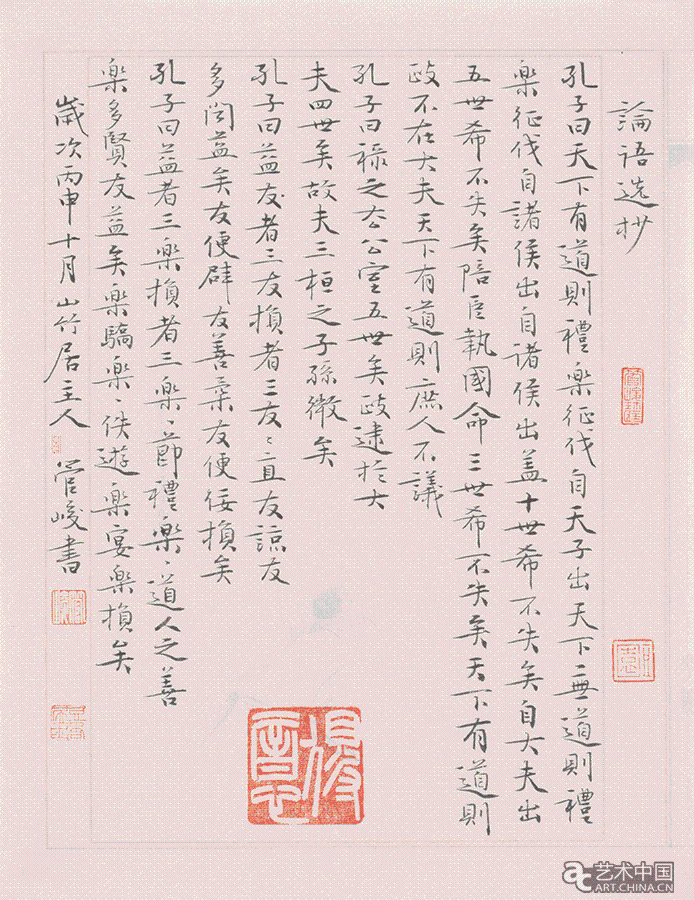 論語选抄
孔子曰天下有道則禮樂征伐自天子出天下無道則禮
樂征伐自諸侯出自諸侯出盖十世希不失矣自大夫出
五世希不失矣陪臣執國命三世希不失矣天下有道則
政不在大夫天下有道則庶人不議
孔子曰禄之去公室五世矣政逮於大
夫四世矣故夫三桓之子孫微矣
孔子曰益友者三友損者三友〻直友諒友
多闻益矣友便辟友善柔友便佞損矣
孔子曰益者三樂損者三樂〻節禮樂〻道人之善
樂多賢友益矣樂驕樂〻佚遊樂宴樂損矣
歲次丙申十月山竹居主人 管峻書
艺术中国
ART.CHINA.CN